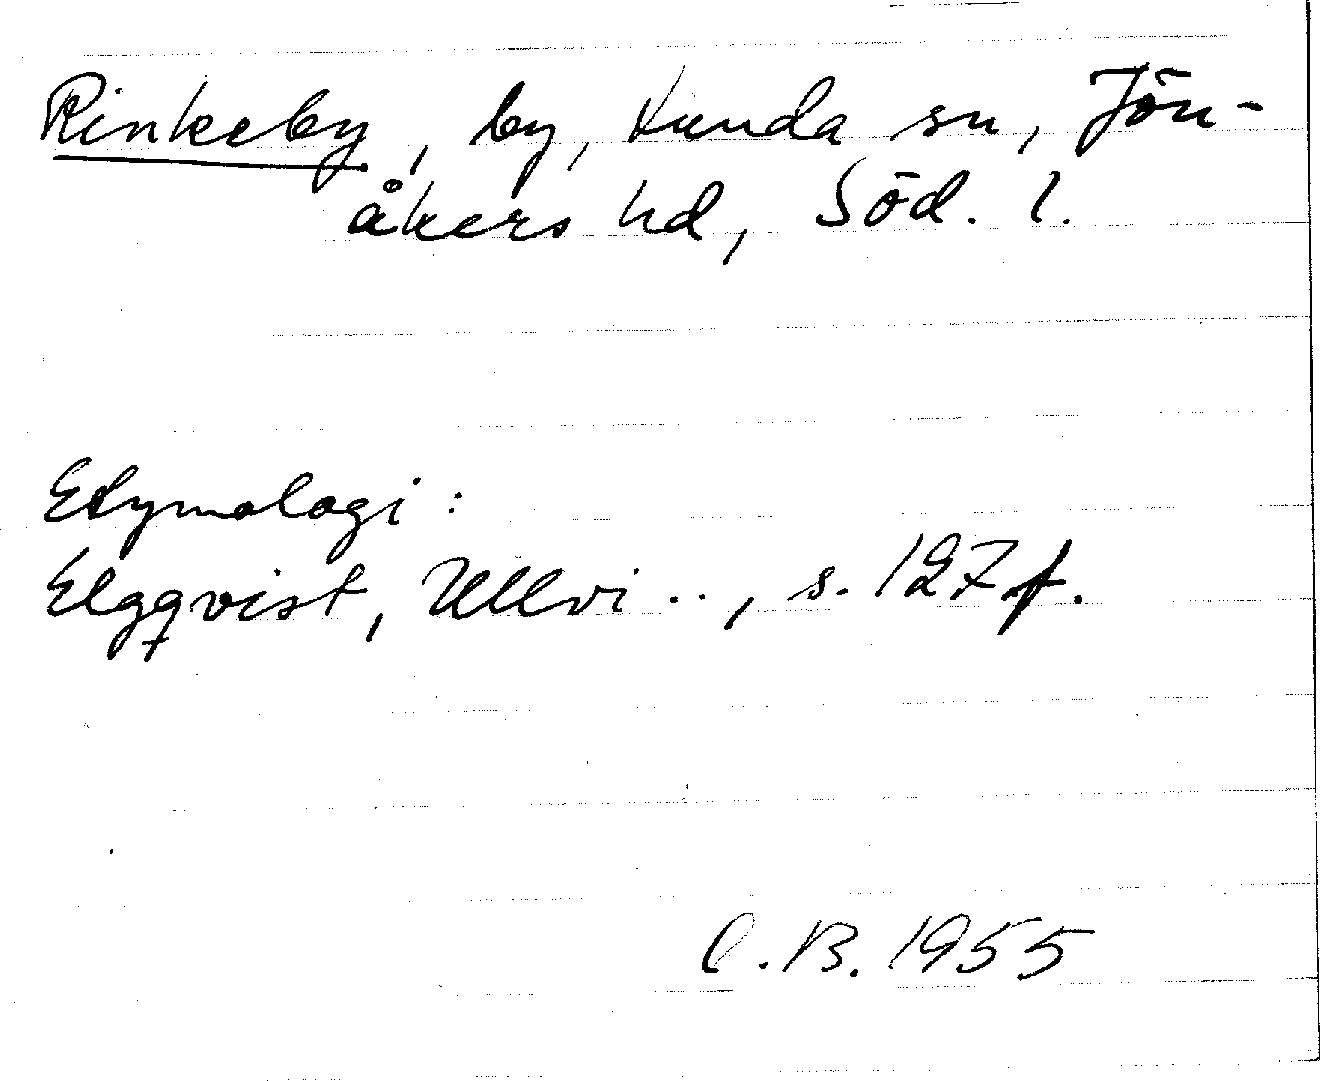 Rinkeby, by, Tunda sn, Jön-
åkers hd, Söd. l.
Etymologi:
Elgqvist, Ullvi.., s. 127 f.
C.B. 1955